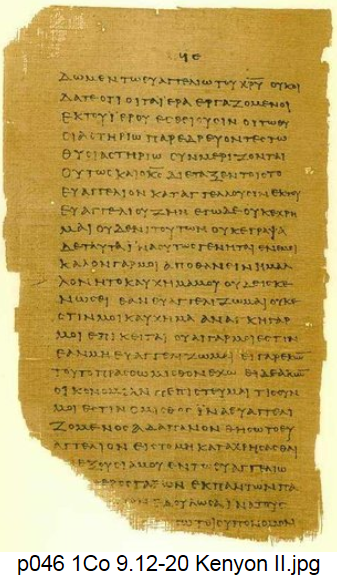 ϤΕ
ΔΩΜΕΝΤΩΕΥΑΓΓΕΛΙΩΤΟΥΧΡ̅Υ̅ ΟΥΚΟΙ
ΔΑΤΕΟΤΙΟΙΤΑΪΕΡΑΕΡΓΑΖΟΜΕΝΟΙ
ΕΚΤΟΥΪΕΡΟΥΕϹΘΙΟΥϹΙΝΟΙΤΩΘΥ
ϹΙΑϹΤΗΡΙΩΠΑΡΕΔΡΕΥΟΝΤΕϹΤΩ
ΘΥϹΙΑϹΤΗΡΙΩ ϹΥΝΜΕΡΙΖΟΝΤΑΙ
ΟΥΤΩϹΚΑΙΟΚ̅Ϲ̅ΔΙΕΤΑΞΕΝΤΟΙϹΤΟ
ΕΥΑΓΓΕΛΙΟΝΚΑΤΑΓΓΕΛΛΟΥϹΙΝΕΚΤΟΥ
ΕΥΑΓΓΕΛΙΟΥΖΗΝ ΕΓΩΔΕΟΥΚΕΧΡΗ
ΜΑΙΟΥΔΕΝΙΤΟΥΤΩΝ ΟΥΚΕΓΡΑΨΑ
ΔΕΤΑΥΤΑΪΝΑΟΥΤΩϹΓΕΝΗΤΑΙΕΝΕΜΟΙ
ΚΑΛΟΝΓΑΡΜΟΙΑΠΟΘΑΝΕΙΝΗΜΑΛ
ΛΟΝΗΤΟΚΑΥΧΗΜΑΜΟΥΟΥΔΕΙϹΚΕ
ΝΩϹΕΙ ΕΑΝΕΥΑΓΓΕΛΙΖΩΜΑΙΟΥΚΕ
ϹΤΙΝΜΟΙΚΑΥΧΗΜΑ ΑΝΑΓΚΗΓΑΡ
ΜΟΙΕΠΙΚΕΙΤΑΙ ΟΥΑΙΓΑΡΜΟΙΕϹΤΙΝ
ΕΑΝΜΗΕΥΑΓΓΕΛΙΖΩΜΑΙ ΕΙΓΑΡΕΚΩ̅
ΤΟΥΤΟΠΡΑϹϹΩΜΙϹΘΟΝΕΧΩ ΕΙΔΕΑΚΩ̅
ΟΙΚΟΝΟΜΙΑΝΠΕΠΙϹΤΕΥΜΑΙΤΙϹΟΥΝ
ΜΟΙΕϹΤΙΝΟΜΙϹΘΟϹ ΪΝΑΕΥΑΓΓΕΛΙ
ΖΟΜΕΝΟϹΑΔΑΠΑΝΟΝΘΗϹΩΤΟΕΥ
ΑΓΓΕΛΙΟΝΕΙϹΤΟΜΗΚΑΤΑΧΡΗϹΑϹΘΑΙ
ΕΞΟΥϹΙΑΜΟΥΕΝΤΩΕΥΑΓΓΕΛΙΩ
ΕΡΟϹΓΑΡΩΝΕΚΠΑΝΤΩΝΠΑ
ΟΝΕΔΟΥΛΩϹΑΪΝΑΤΟΥϹ
ΤΟΙϹΥΠΟΝΟΜΟΝ
p046 1Co 9.12-20 Kenyon II.jpg